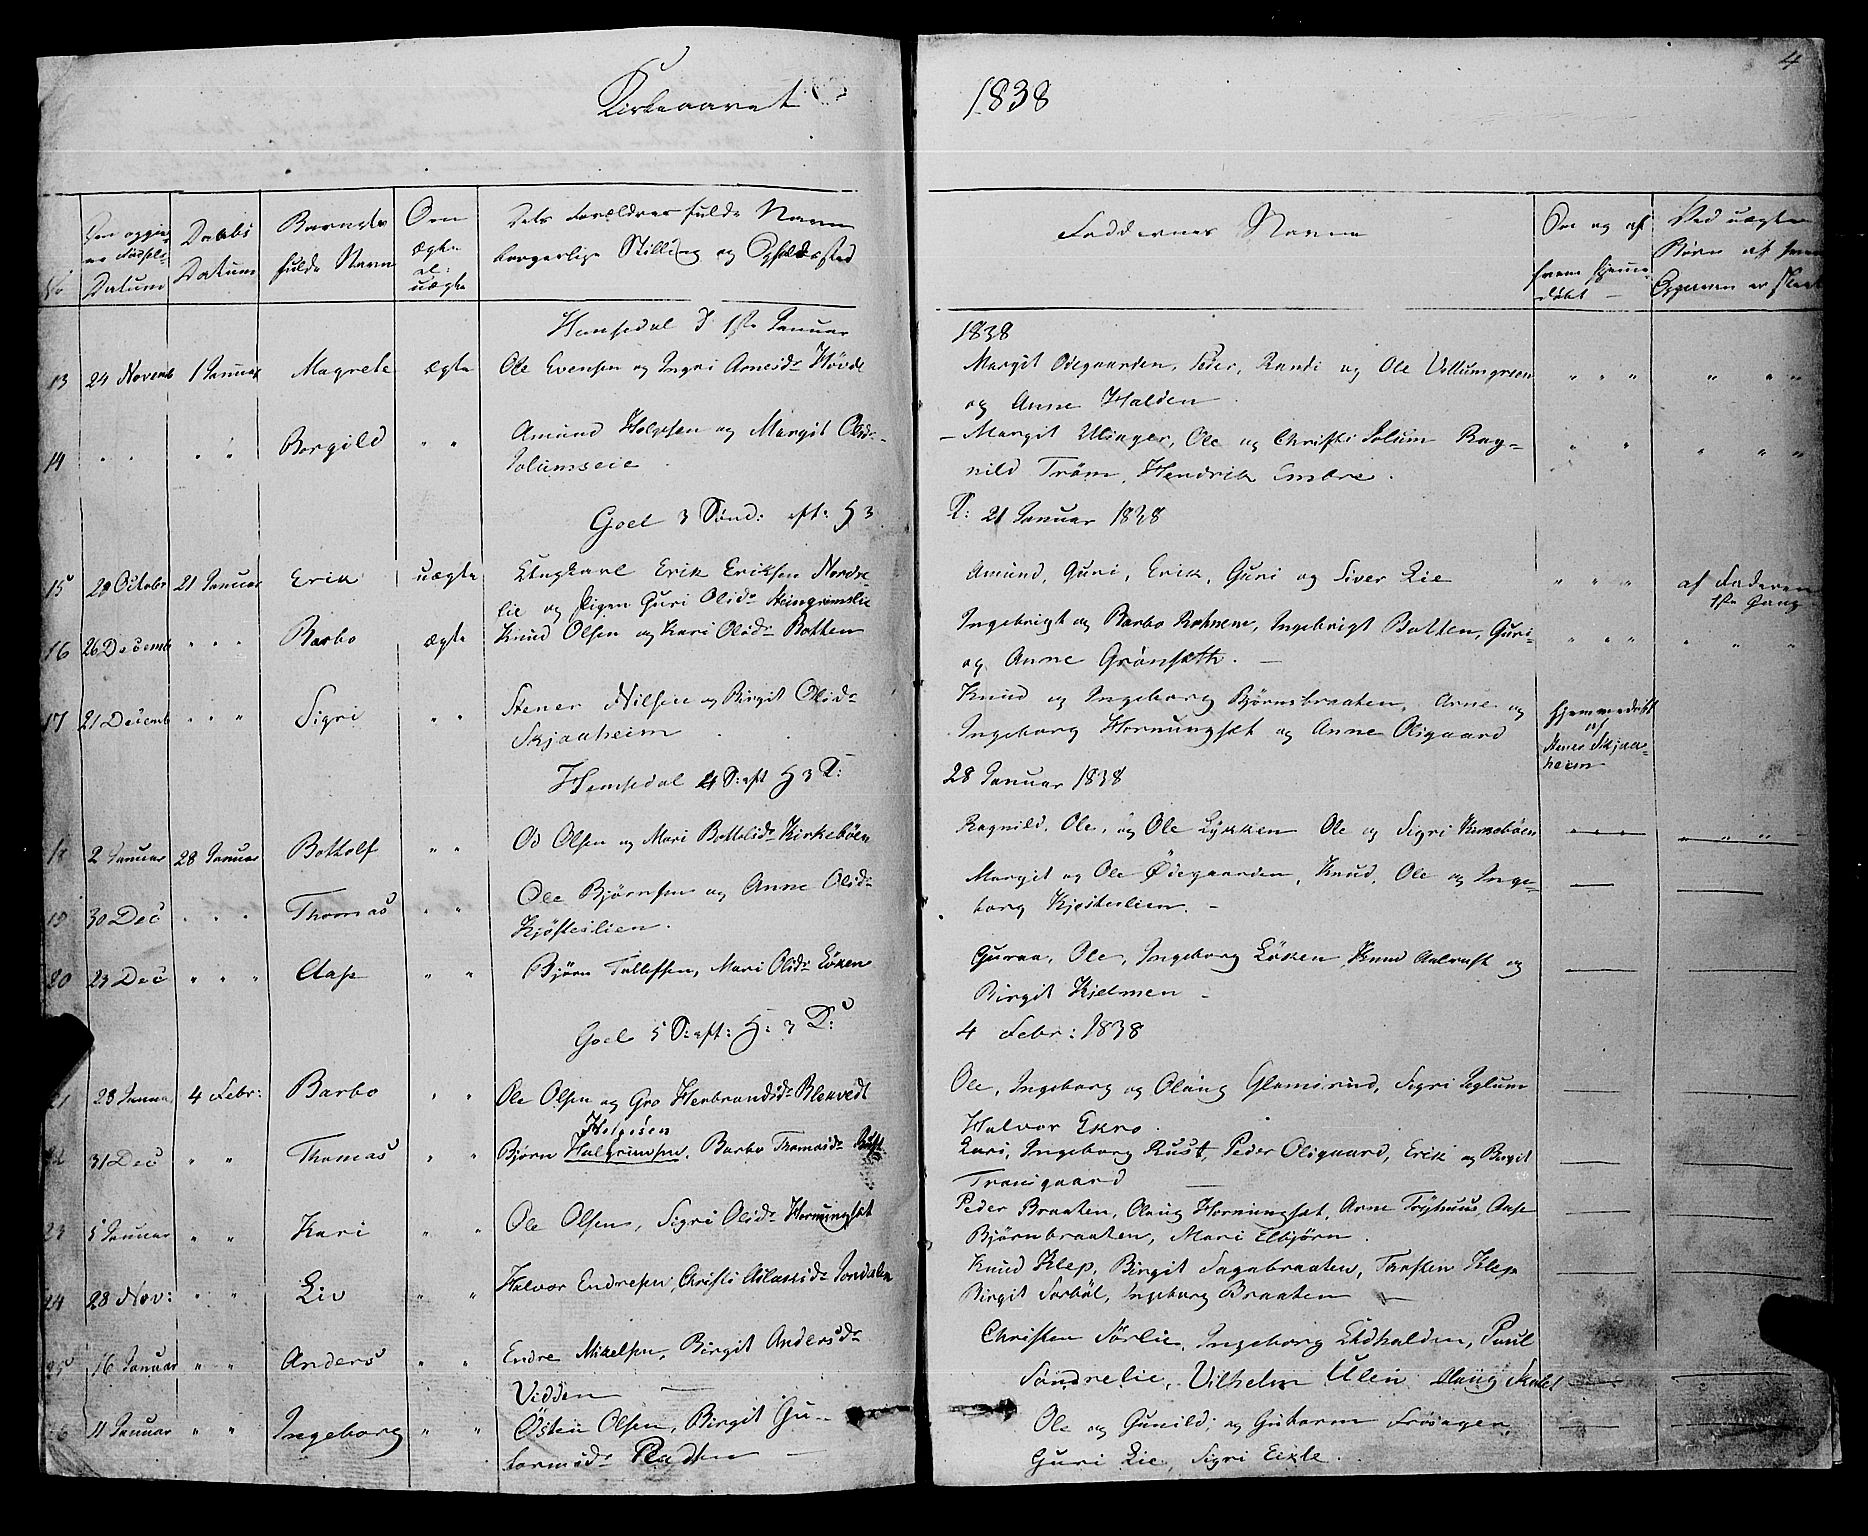 4
Kirkeaaret 1838
No
Den opgivne Fødsels-Datum
Daabs Datum
Barnets fulde Navn
Om ægte el: uægte
Dets Forældres fulde Navn borgerlige Stilling og Opholdssted
Faddernes Navne
Om og af hvem hjemmedøbt
Ved uægte Børn af hvem Opgaven er skeet
Hemsedal d 1ste Januar 1838
13 24 Novemb 1 Januar Magrete ægte Ole Evensen og Ingri Arnesd: Høvde
Margit Odegaarden, Peder, Randi og Ole Ulsaker
og Anne Halden " " " " " "
14 " " " " Borgild " " Amund Helgesen og Margit Olsd:
Solumseie
Margit Ulsager, Ole og Christi Solum Rag-
nild Trøm, Hendrik Embre. " " " " "
Goel 3 Sønd: eft: H 3 K: 21 Januar 1838
15 29 Octobr 21 Januar Erik uægte Ungkarl Erik Eriksen Nordre-
lie og Pigen Guri Olsd: Steingrimslie
Amund, Guri, Erik, Guri og Siver Lie " " " af Faderen
1ste Gang
16 26 Decemb " " " Barbo ægte Knud Olsen og Kari Olsd: Botten
Ingebrigt og Barbo Rohnene, Ingebrigt Botten, Guri-
og Anne Grønseth. " " " " " "
17 21 Decemb " " " Sigri " " Stener Nilsen og Birgit Olsd:
Skjaaheim
Knud og Ingeborg Bjørnsbraaten, Arne og
Ingeborg Horningset og Anne Olsgaard
hjemmedøbt
af
Stener Skjaa-
heim
Hemsedal 4 S: eft H 3 K: 28 Januar 1838
18 2 Januar 28 Januar Bottolf " " Od Olsen og Mari Bottolsd: Kirkebøen
Ragnild, Ole, og Ole Lykken Ole og Sigri Kirkebøen
19 30 Dec " " " Thomas " " Ole Bjørnsen og Anne Olsd:
Kjøsteslien.
Margit og Ole Ødegaarden, Knud, Ole og Inge-
borg Kjøsteslien.
20 23 Dec " " " Aase " " Bjørn Tollefsen, Mari Olsd: Løken
Guroe, Ole, Ingeborg Løken Knud Aalrust og
Birgit Kjelmen
Goel 5 S: eft: H: 3 K: 4 Febr: 1838
21 28 Janua 4 Febr: Barbo " " Ole Olsen og Gro Herbrandsd: Blekvedt
Ole, Ingeborg og Olaug Glomsrud, Sigri Liglum
Halvor Ekro.
Helgesen
22 31 Dec " " Thomas " " Bjørn Halgrimsen, Barbo Thomasd: Rust
Kari, Ingeborg Rust, Peder Olsgaard, Erik og Birgit
Transgaard
23 5 Januar " " Kari " " Ole Olsen, Sigri Olsd: Hornungset
Peder Braaten, Olaug Hornungset, Arne Trøhuus, Aase
Bjørnbraaten, Mari Elbjørn.
24 28 Nov: " " Liv " " Halvor Endresen, Christi Aslaksd: Sondalen
Knud Klep, Birgit Sagabraaten, Thosten Klep
Birgit Sorbøl, Ingeborg Braaten
25 16 Januar " " Anders " " Endre Mikelsen, Birgit Andersd:
Vidden
Christen Sørlie, Ingeborg Eidhalden, Poul
Søndrelie, Vilhelm Ulen Olaug
26 11 Januar " " Ingeborg " " Østen Olsen, Birgit Gu-
tormsd: Pladten
Ole og Gunild, og Gutorm Frøsagen,
Guri Lie, Sigri Eikle.